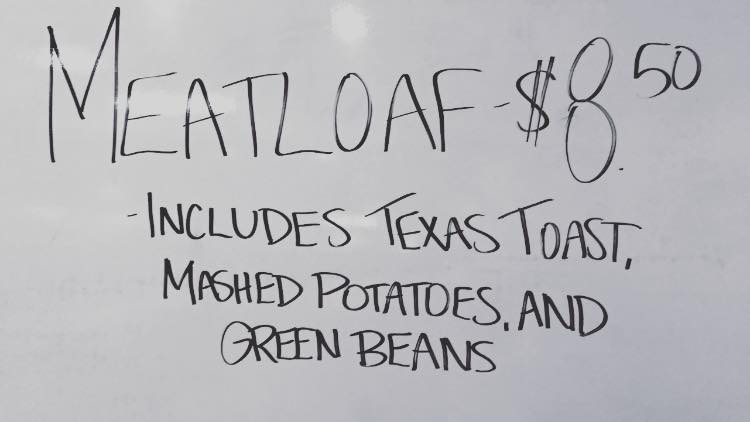 MEATLOAF-$8.50
-INCLUDES TEXAS TOAST,
MASHED POTATOES, AND
GREEN BEANS